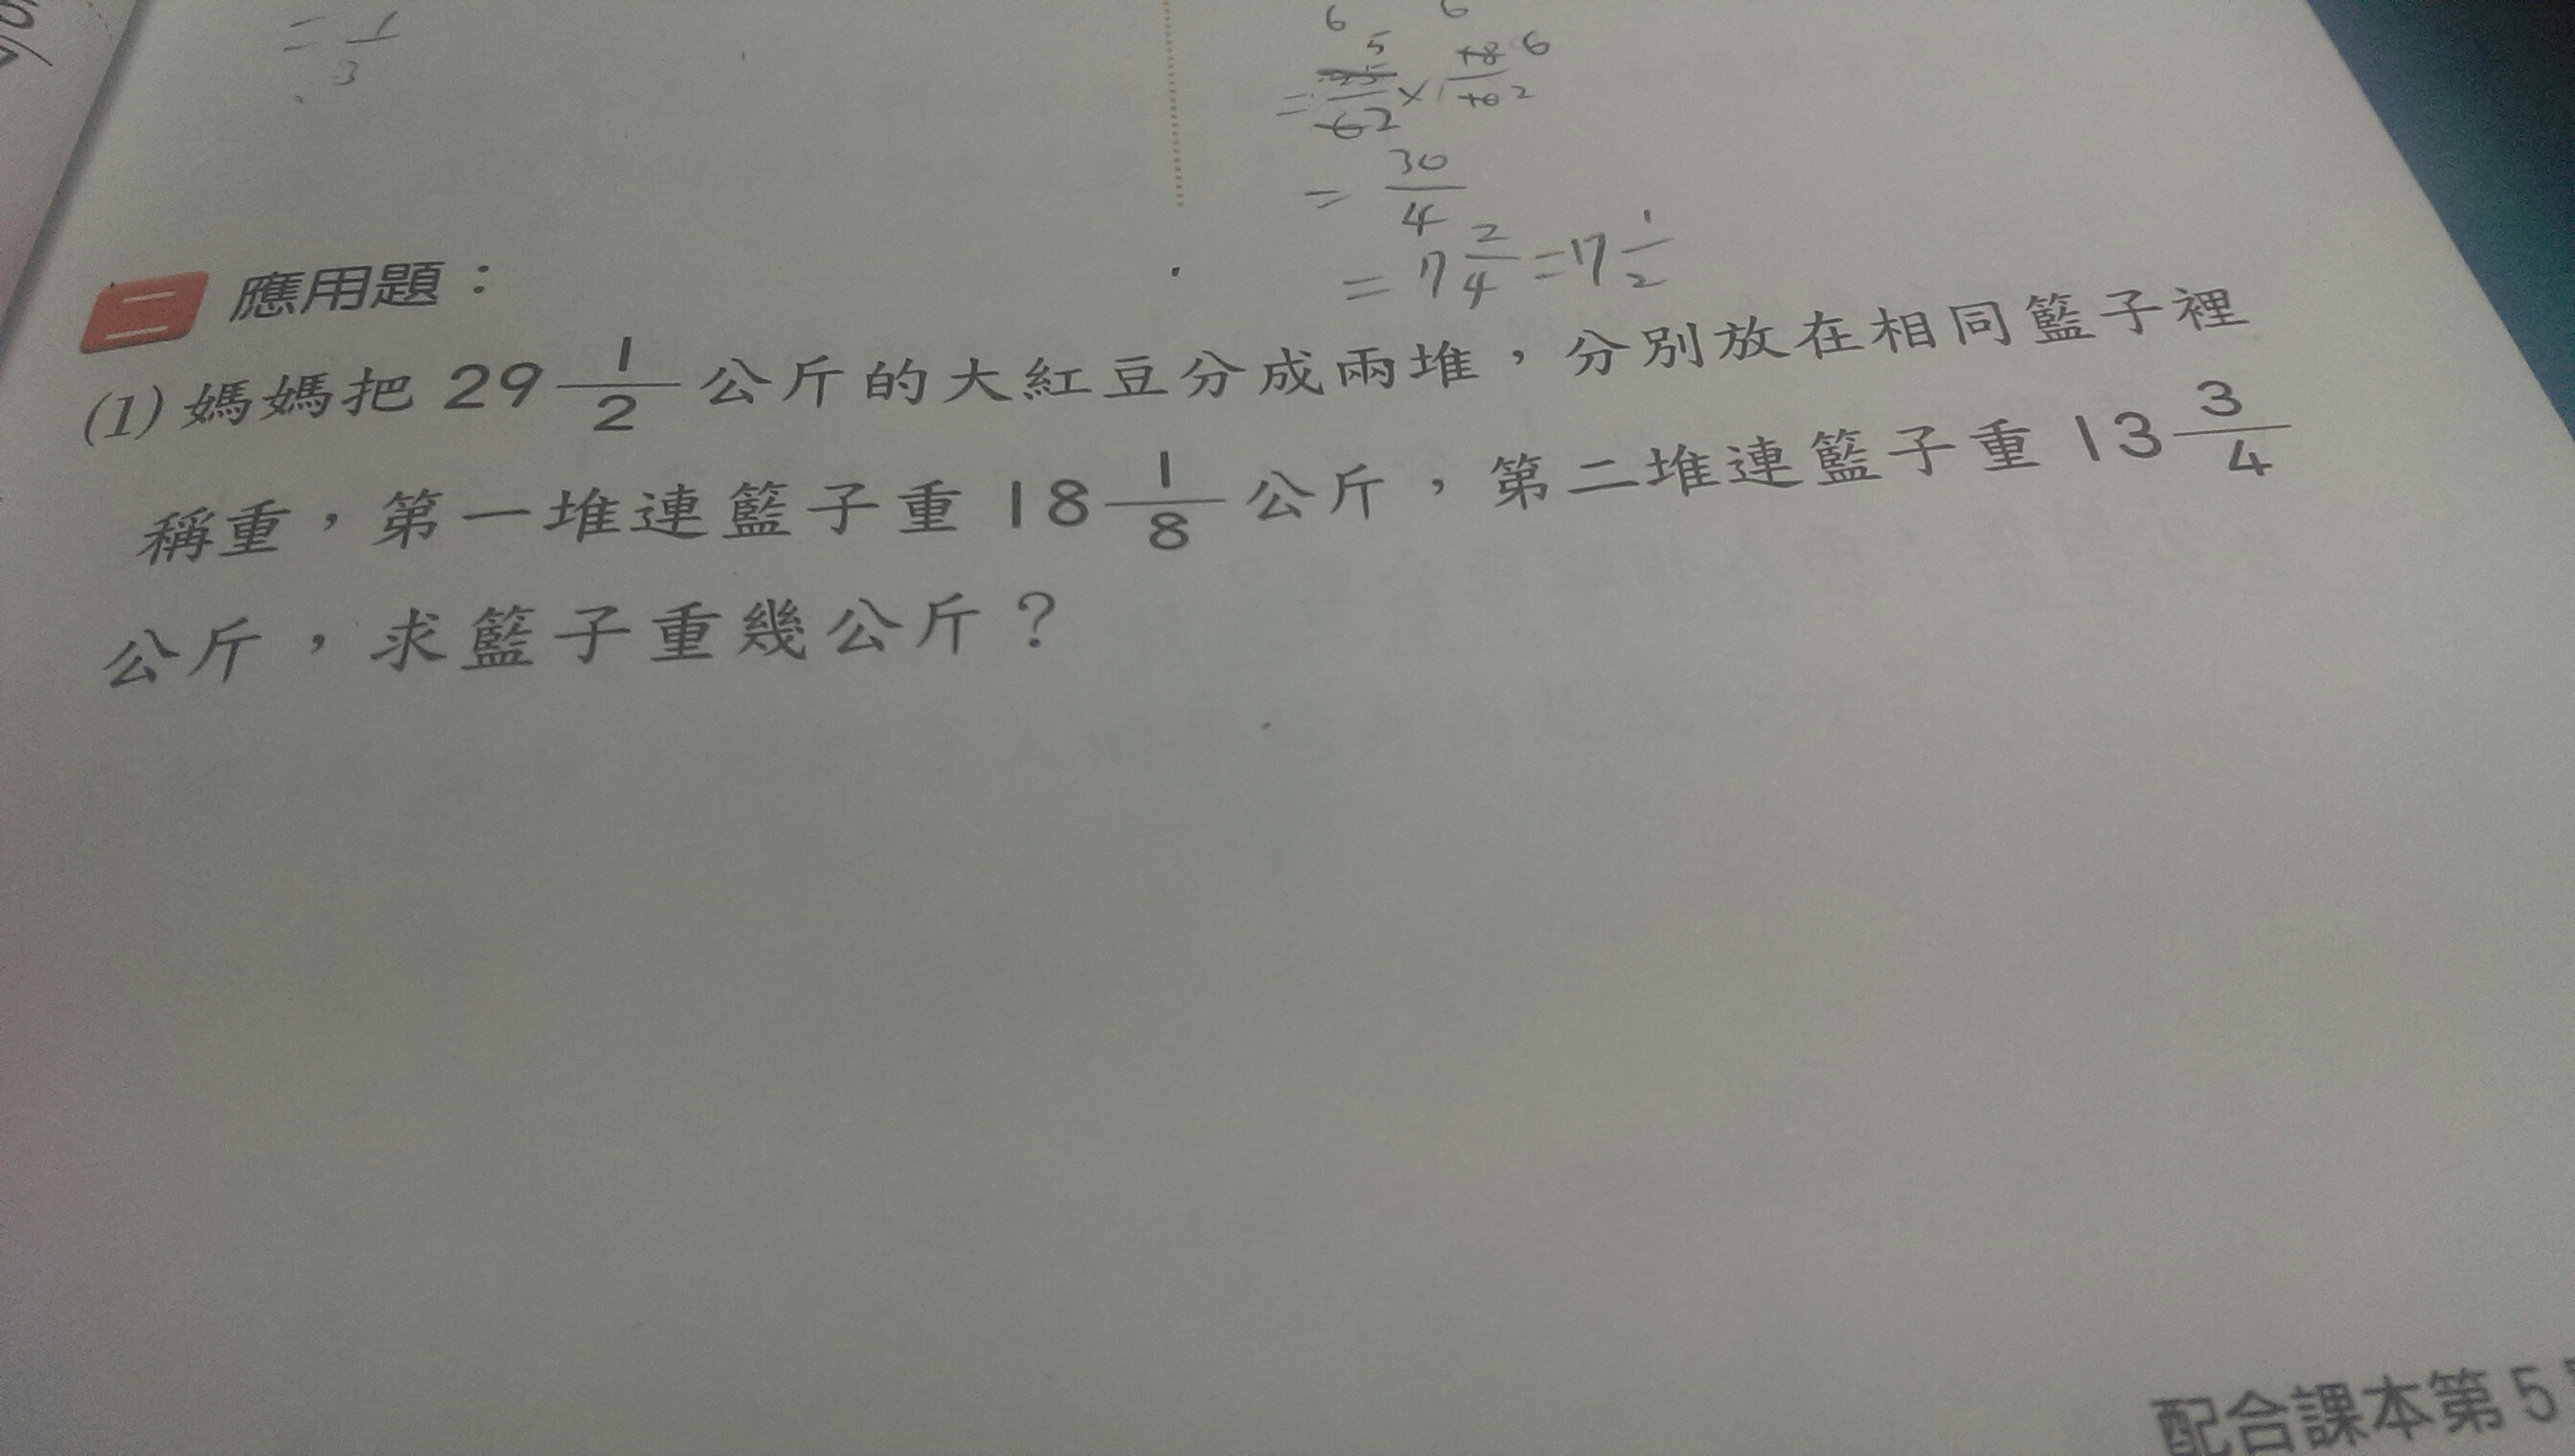 = 1/3
6 6
= 25/6 5 2 × 18/10 6 2
= 30/4
= 7 2/4 = 7 1/2
二 應用題：
(1) 媽媽把 29 1/2 公斤的大紅豆分成兩堆，分別放在相同籃子裡
稱重，第一堆連籃子重 18 1/8 公斤，第二堆連籃子重 13 3/4
公斤，求籃子重幾公斤？
配合課本第 5